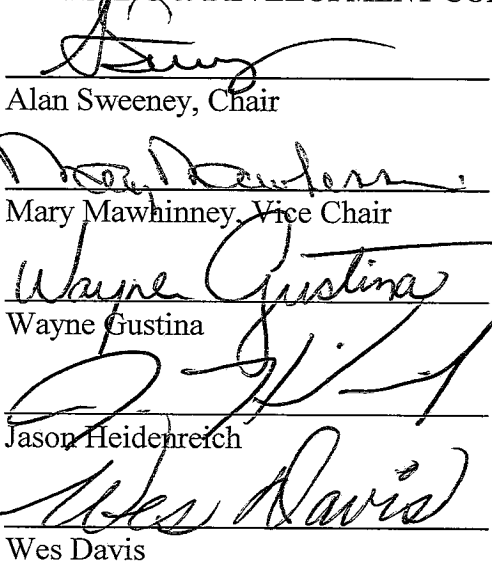 DEVELOPMENT
Alan Sweeney, Chair
Mary Mawhinney, Vice Chair
Wayne Gustina
Wayne Gustina
Jason Heidenreich
Wes Davis
Wes Davis